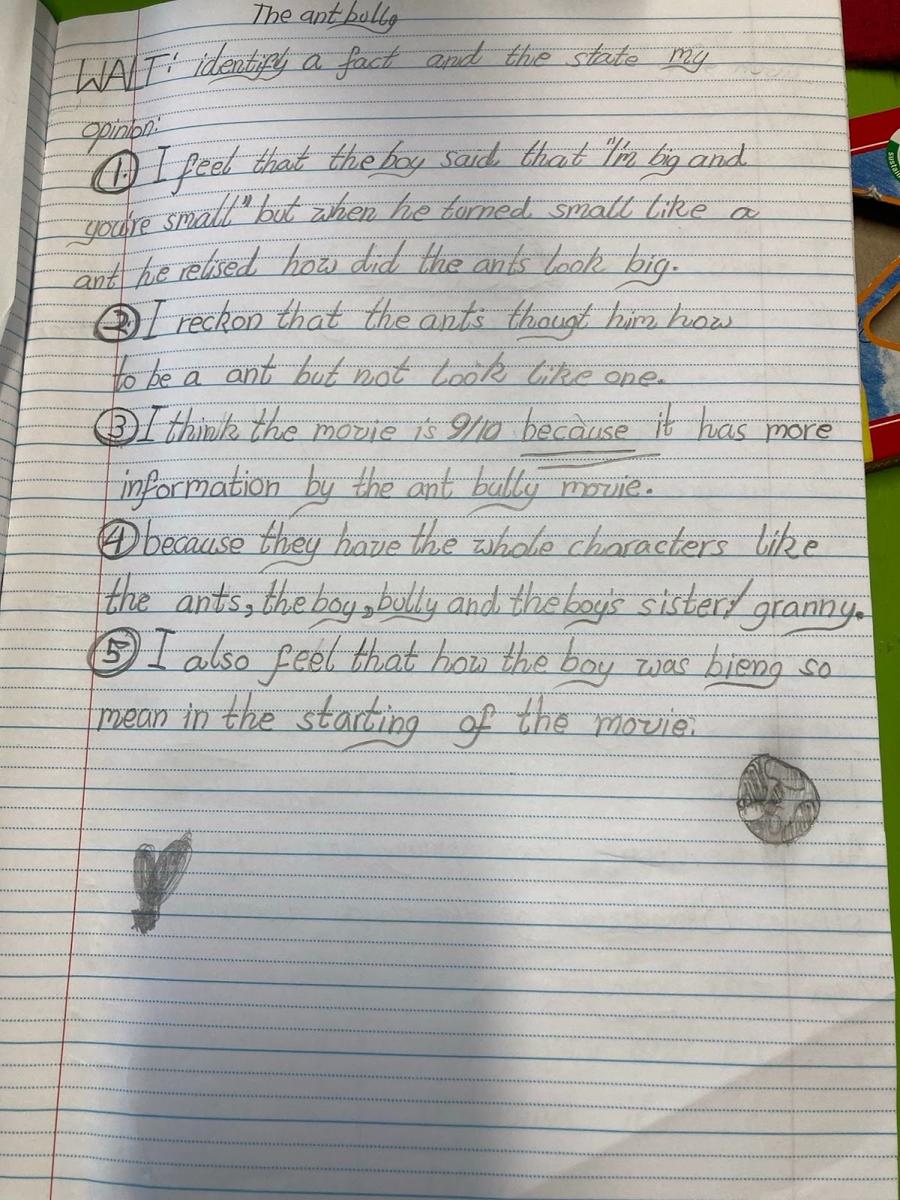 The ant bully
WALT: identify a fact and the state my
opinion:
1. I feel that the boy said that "I'm big and
you're small" but when he turned small like a
ant he relised how did the ants look big.
2. I reckon that the ants thougt him how
to be a ant but not look like one.
3 I think the movie is 9/10 because it has more
information by the ant bully movie.
4 because they have the whole characters like
the ants, the boy, bully and the boy's sister/granny.
5 I also feel that how the boy was bieng so
mean in the starting of the movie.